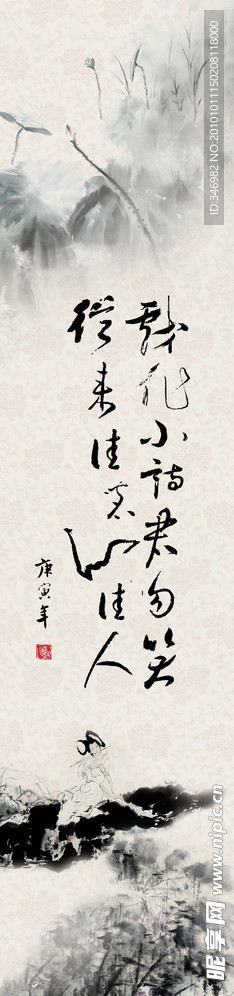 戏作小诗君勿笑
从来佳茗似佳人
庚寅年
ID:346982 NO:20101011150208118000
昵享网 www.nipic.cn